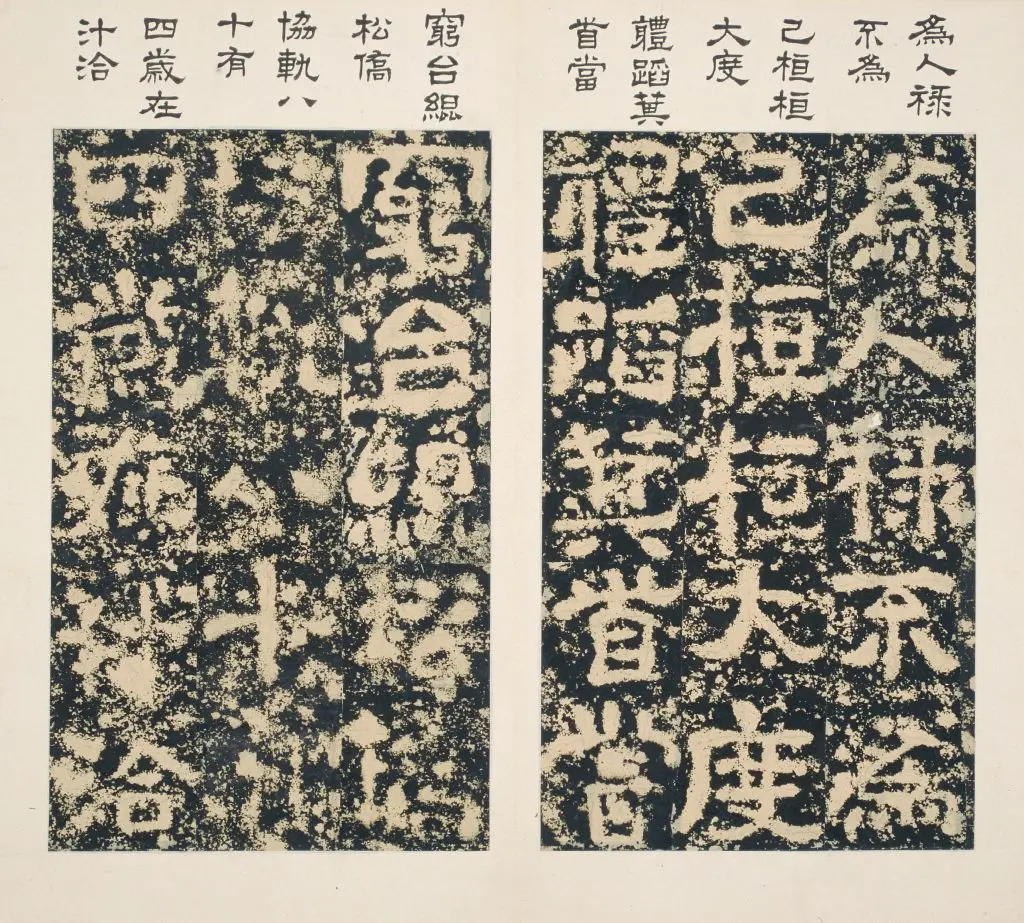 為人祿
不為
己桓桓
大度
體蹈萁
首當
窮台緄
松僑
協軌八
十有
四歲在
汁洽
為人祿不為
己桓桓大度
體蹈萁首當
窮台緄松僑
協軌八十有
四歲在汁洽